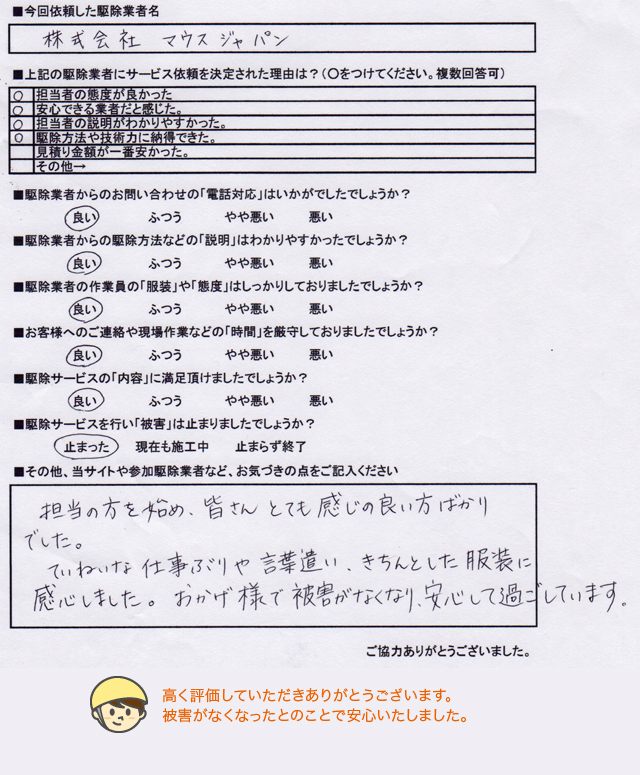 ■今回依頼した駆除業者名
株式会社 マウスジャパン
■上記の駆除業者にサービス依頼を決定された理由は？(〇をつけてください。複数回答可)
〇 担当者の態度が良かった
〇 安心できる業者だと感じた。
〇 担当者の説明がわかりやすかった。
〇 駆除方法や技術力に納得できた。
見積り金額が一番安かった。
その他→
■駆除業者からのお問い合わせの「電話対応」はいかがでしたでしょうか？
良い ふつう やや悪い 悪い
■駆除業者からの駆除方法などの「説明」はわかりやすかったでしょうか？
良い ふつう やや悪い 悪い
■駆除業者の作業員の「服装」や「態度」はしっかりしておりましたでしょうか？
良い ふつう やや悪い 悪い
■お客様へのご連絡や現場作業などの「時間」を厳守しておりましたでしょうか？
良い ふつう やや悪い 悪い
■駆除サービスの「内容」に満足頂けましたでしょうか？
良い ふつう やや悪い 悪い
■駆除サービスを行い「被害」は止まりましたでしょうか？
止まった 現在も施工中 止まらず終了
■その他、当サイトや参加駆除業者など、お気づきの点をご記入ください
担当の方を始め、皆さんとても感じの良い方ばかり
でした。
ていねいな仕事ぶりや言葉遣い、きちんとした服装に
感心しました。おかげ様で被害がなくなり、安心して過ごしています。
ご協力ありがとうございました。
高く評価していただきありがとうございます。
被害がなくなったとのことで安心いたしました。